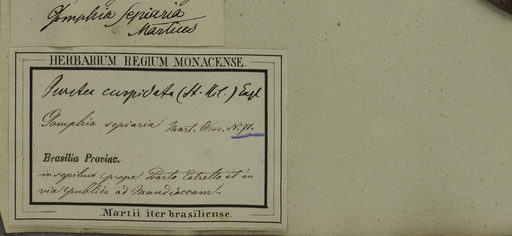 Gomphia sepiaria
Martius
HERBARIUM REGIUM MONACENSE.
cuspidata (St. Hil.) Engl
Gomphia sepiaria Mart. Obs. N. 71.
Brasilia Provinc.
in sepibus prope Porto Estrella et in
via publica ad Mandioccam.
Martii iter brasiliense.